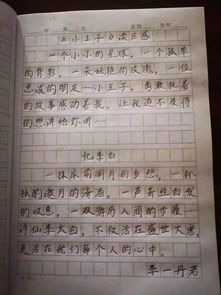 年 月 日 星期 天气
《小王子》读后感
一个小小的星球，一个孤单
的背影，一朵妖艳的玫瑰，一位
忠诚的朋友一小王子，勇敢执着
的故事感动着我，让我迫不及待
的想讲给你听…
忆李白
一抹床前明月的乡愁，一杯
独酌邀月的清酒，一声青丝白发
的叹息，一双游历人间的步履…
诗仙李太白，不仅活在盛世大唐，
更活在我们每个人的心中。
李一丹若